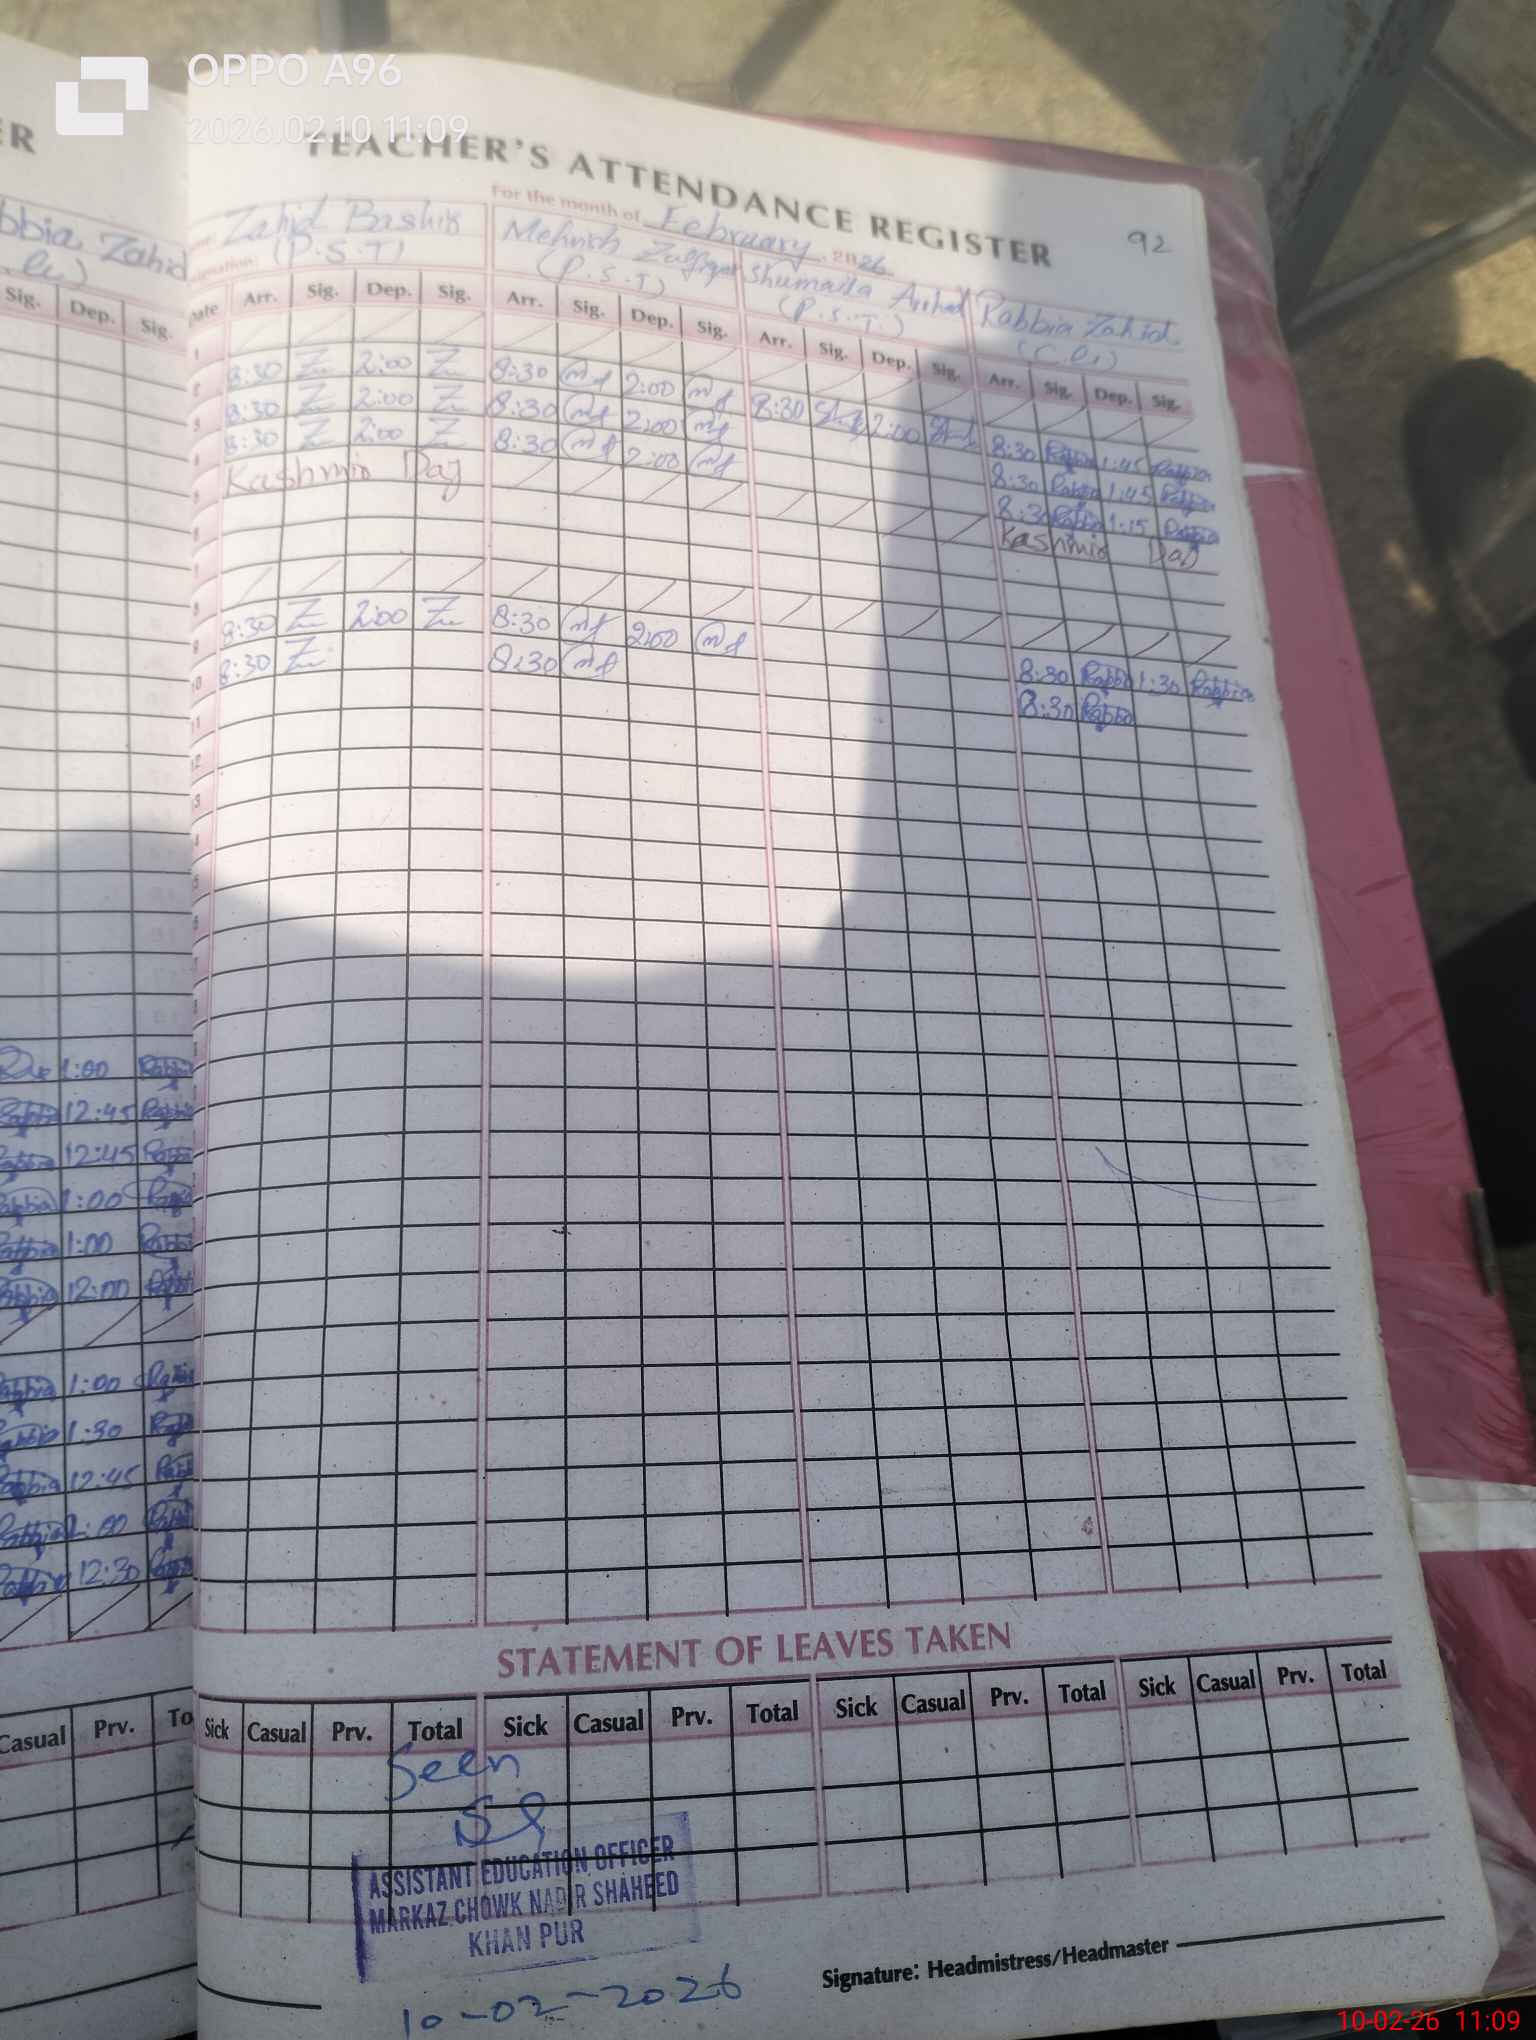 OPPO A96
2026.02.10 11:09
ER
TEACHER'S ATTENDANCE REGISTER
92
For the month of February 2026
Zahid
Zahid Bashir
Mehrish Zulfiqar
Shumaila Arshad
Rabbia Zahid
(P.S.T)
(P.S.T)
(P.S.T.)
Sig. Dep. Sig.
Date Arr. Sig. Dep. Sig. Arr. Sig. Dep. Sig. Arr. Sig. Dep. Sig. Arr. Sig. Dep. Sig.
1
2 8:30 2:00 8:30 2:00 8:30 2:00 8:30 Rabbia 1:45 Rabbia
3 8:30 2:00 8:30 2:00 8:30 Rabbia 1:45 Rabbia
4 8:30 2:00 8:30 2:00 8:30 Rabbia 1:15 Rabbia
5 Kashmir Day Kashmir Day
6
7
8
9 8:30 2:00 8:30 2:00 8:30 Rabbia 1:30 Rabbia
10 8:30 8:30 8:30 Rabbia
11
12
1:00 Rabbia
Rabbia 12:45 Rabbia
Rabbia 12:45 Rabbia
Rabbia 1:00 Rabbia
Rabbia 1:00 Rabbia
Rabbia 12:00 Rabbia
Rabbia 1:00 Rabbia
Rabbia 1:30 Rabbia
Rabbia 12:45 Rabbia
Rabbia 1:00 Rabbia
Rabbia 12:30 Rabbia
STATEMENT OF LEAVES TAKEN
Casual Prv. To
Sick Casual Prv. Total Sick Casual Prv. Total Sick Casual Prv. Total Sick Casual Prv. Total
Seen
ASSISTANT EDUCATION OFFICER
MARKAZ CHOWK NADIR SHAHEED
KHAN PUR
10-02-2026
Signature: Headmistress/Headmaster
10-02-26 11:09